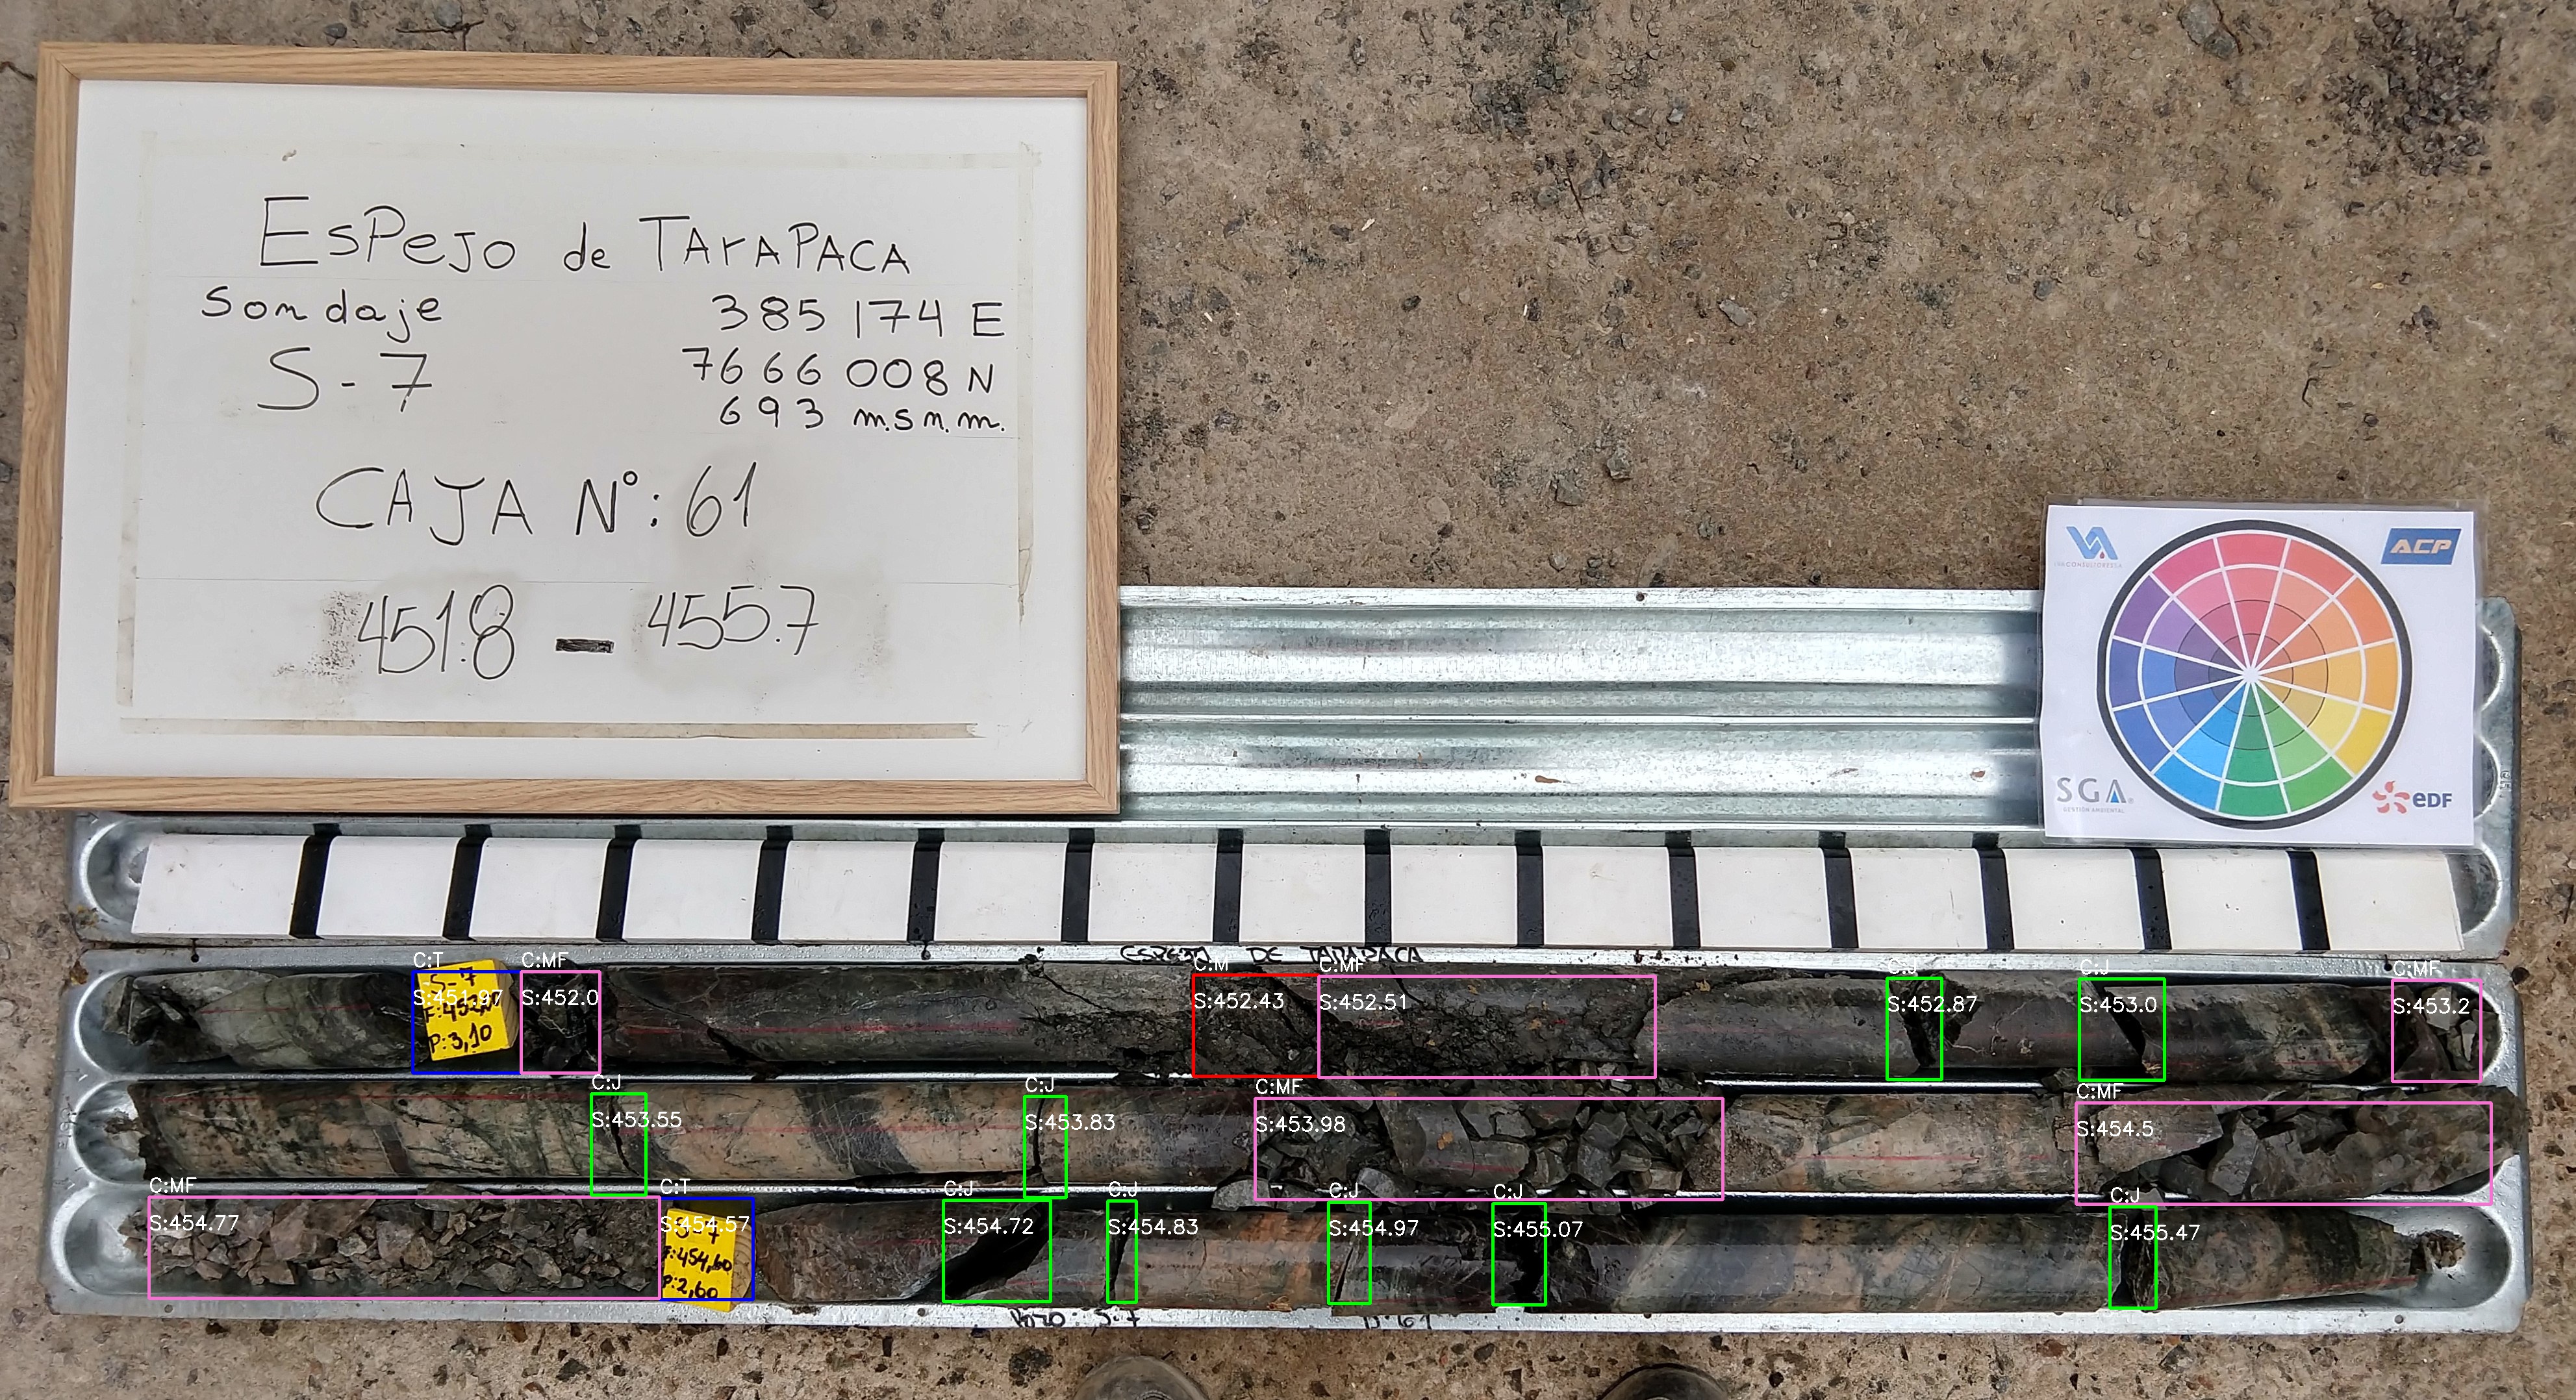 EsPeJo de TArAPACA
Sondaje
385 174 E
S-7
7666 008 N
693 m.s.n.m.
CAJA N°: 61
451.8 - 455.7
VA
CONSULTORES
ACP
SGA
GESTIÓN AMBIENTAL
eDF
ESPEJO DE TARAPACA
C:T
S:451.97
S-7
P:3,10
C:MF
S:452.0
C:M
S:452.43
C:MF
S:452.51
C:J
S:452.87
C:J
S:453.0
C:MF
S:453.2
C:J
S:453.55
C:J
S:453.83
C:MF
S:453.98
C:MF
S:454.5
C:MF
S:454.77
C:T
S:454.57
S-7
F:454,60
P:2,60
C:J
S:454.72
C:J
S:454.83
C:J
S:454.97
C:J
S:455.07
C:J
S:455.47
POZO: S-7